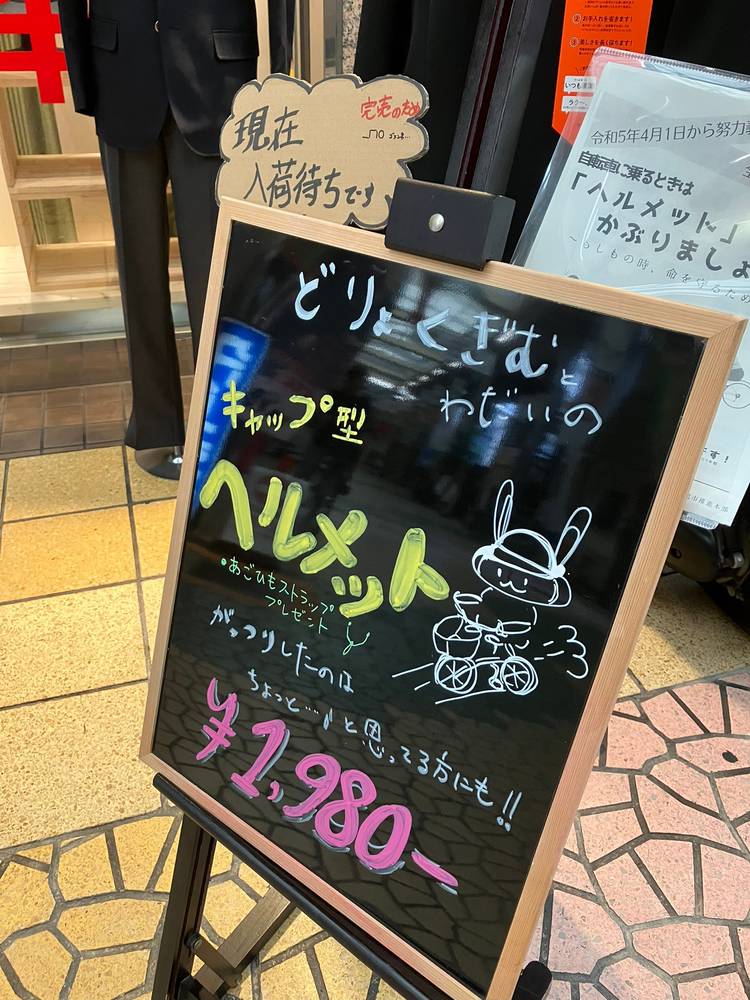 現在
完売のため
入荷待ちです
どりょくぎむと
わだいの
キャップ型
ヘルメット
•あごひもストラップ
プレゼント
がっつりしたのは
ちょっと…♪と思ってる方にも!!
¥1,980-
②お手入れを省きます!
③美しさを長く保ちます!
いつも清潔
令和5年4月1日から努力義
自転車に乗るときは
「ヘルメット」
かぶりましょ
~もしもの時、命を守るため
す!